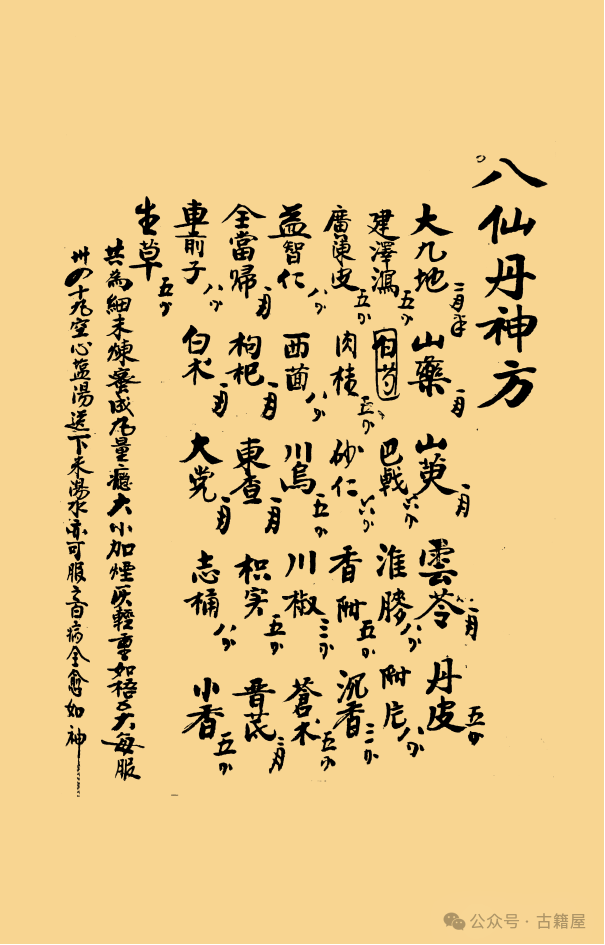 八仙丹神方
大九地 二両半 山藥 一両 山萸 一両 雲苓 二両 丹皮 五分
建澤瀉 五分 白芍 巴戟 六分 淮膝 八分 附片 八分
廣陳皮 五分 肉桂 五分 砂仁 六分 香附 五分 沉香 三分
益智仁 八分 西茴 八分 川烏 五分 川椒 三分 蒼术 五分
全當歸 一両 枸杞 一両 東查 一両 枳实 五分 晋芪 二両
車前子 八分 白术 一両 大党 一両 志桶 八分 小香 五分
生草 五分
共為細末煉蜜成九量癮大小加煙灰輕重如梧子大每服
卅四十九空心盐湯送下米湯水亦可服之百病全愈如神
公众号·古籍屋